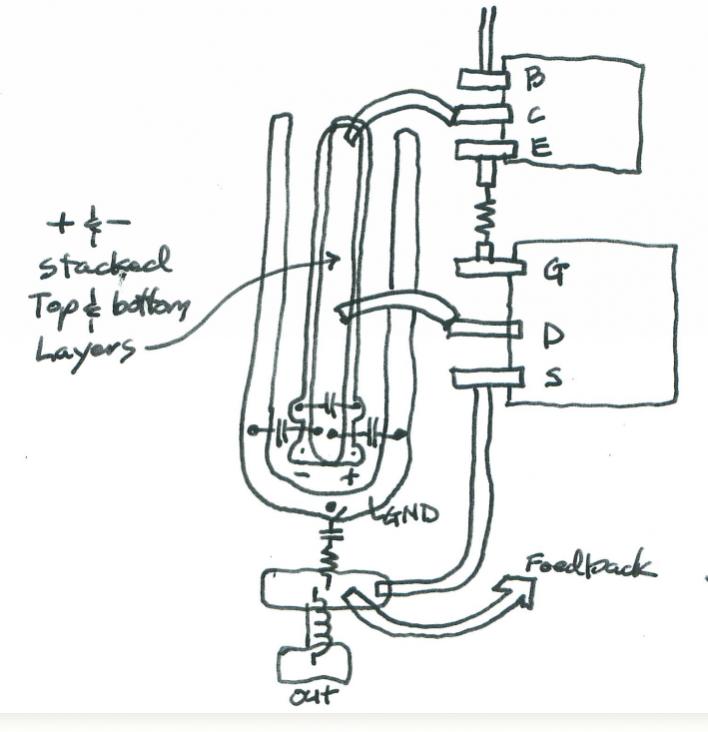 B
C
E
+ & -
stacked
Top & bottom
Layers
G
D
S
- +
GND
Feedback
out